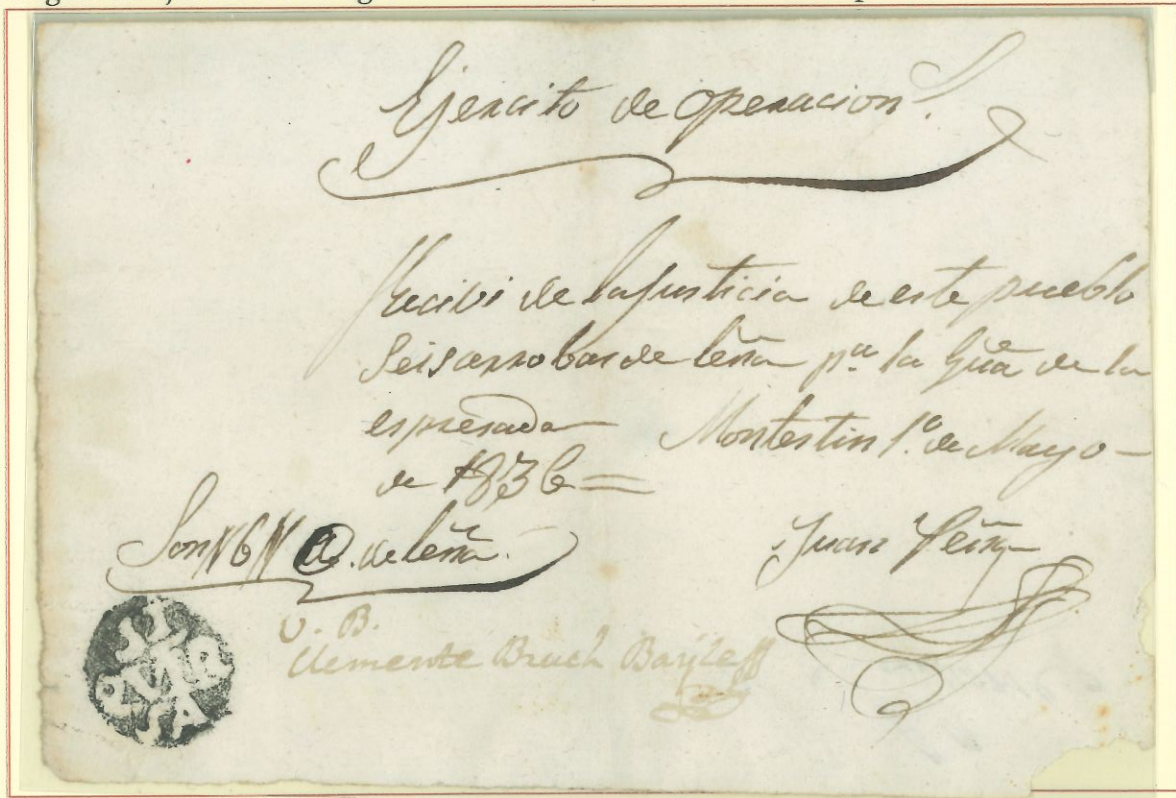 Ejercito de operacion.s
Recivi de la Justicia de este pueblo
Seis arrobas de leña p.a la Gũa de la
espresada Montestin 1.o de Mayo
de 1836=
Son//6//@. de leña.
Juan
V. B.
Clemente Bayle